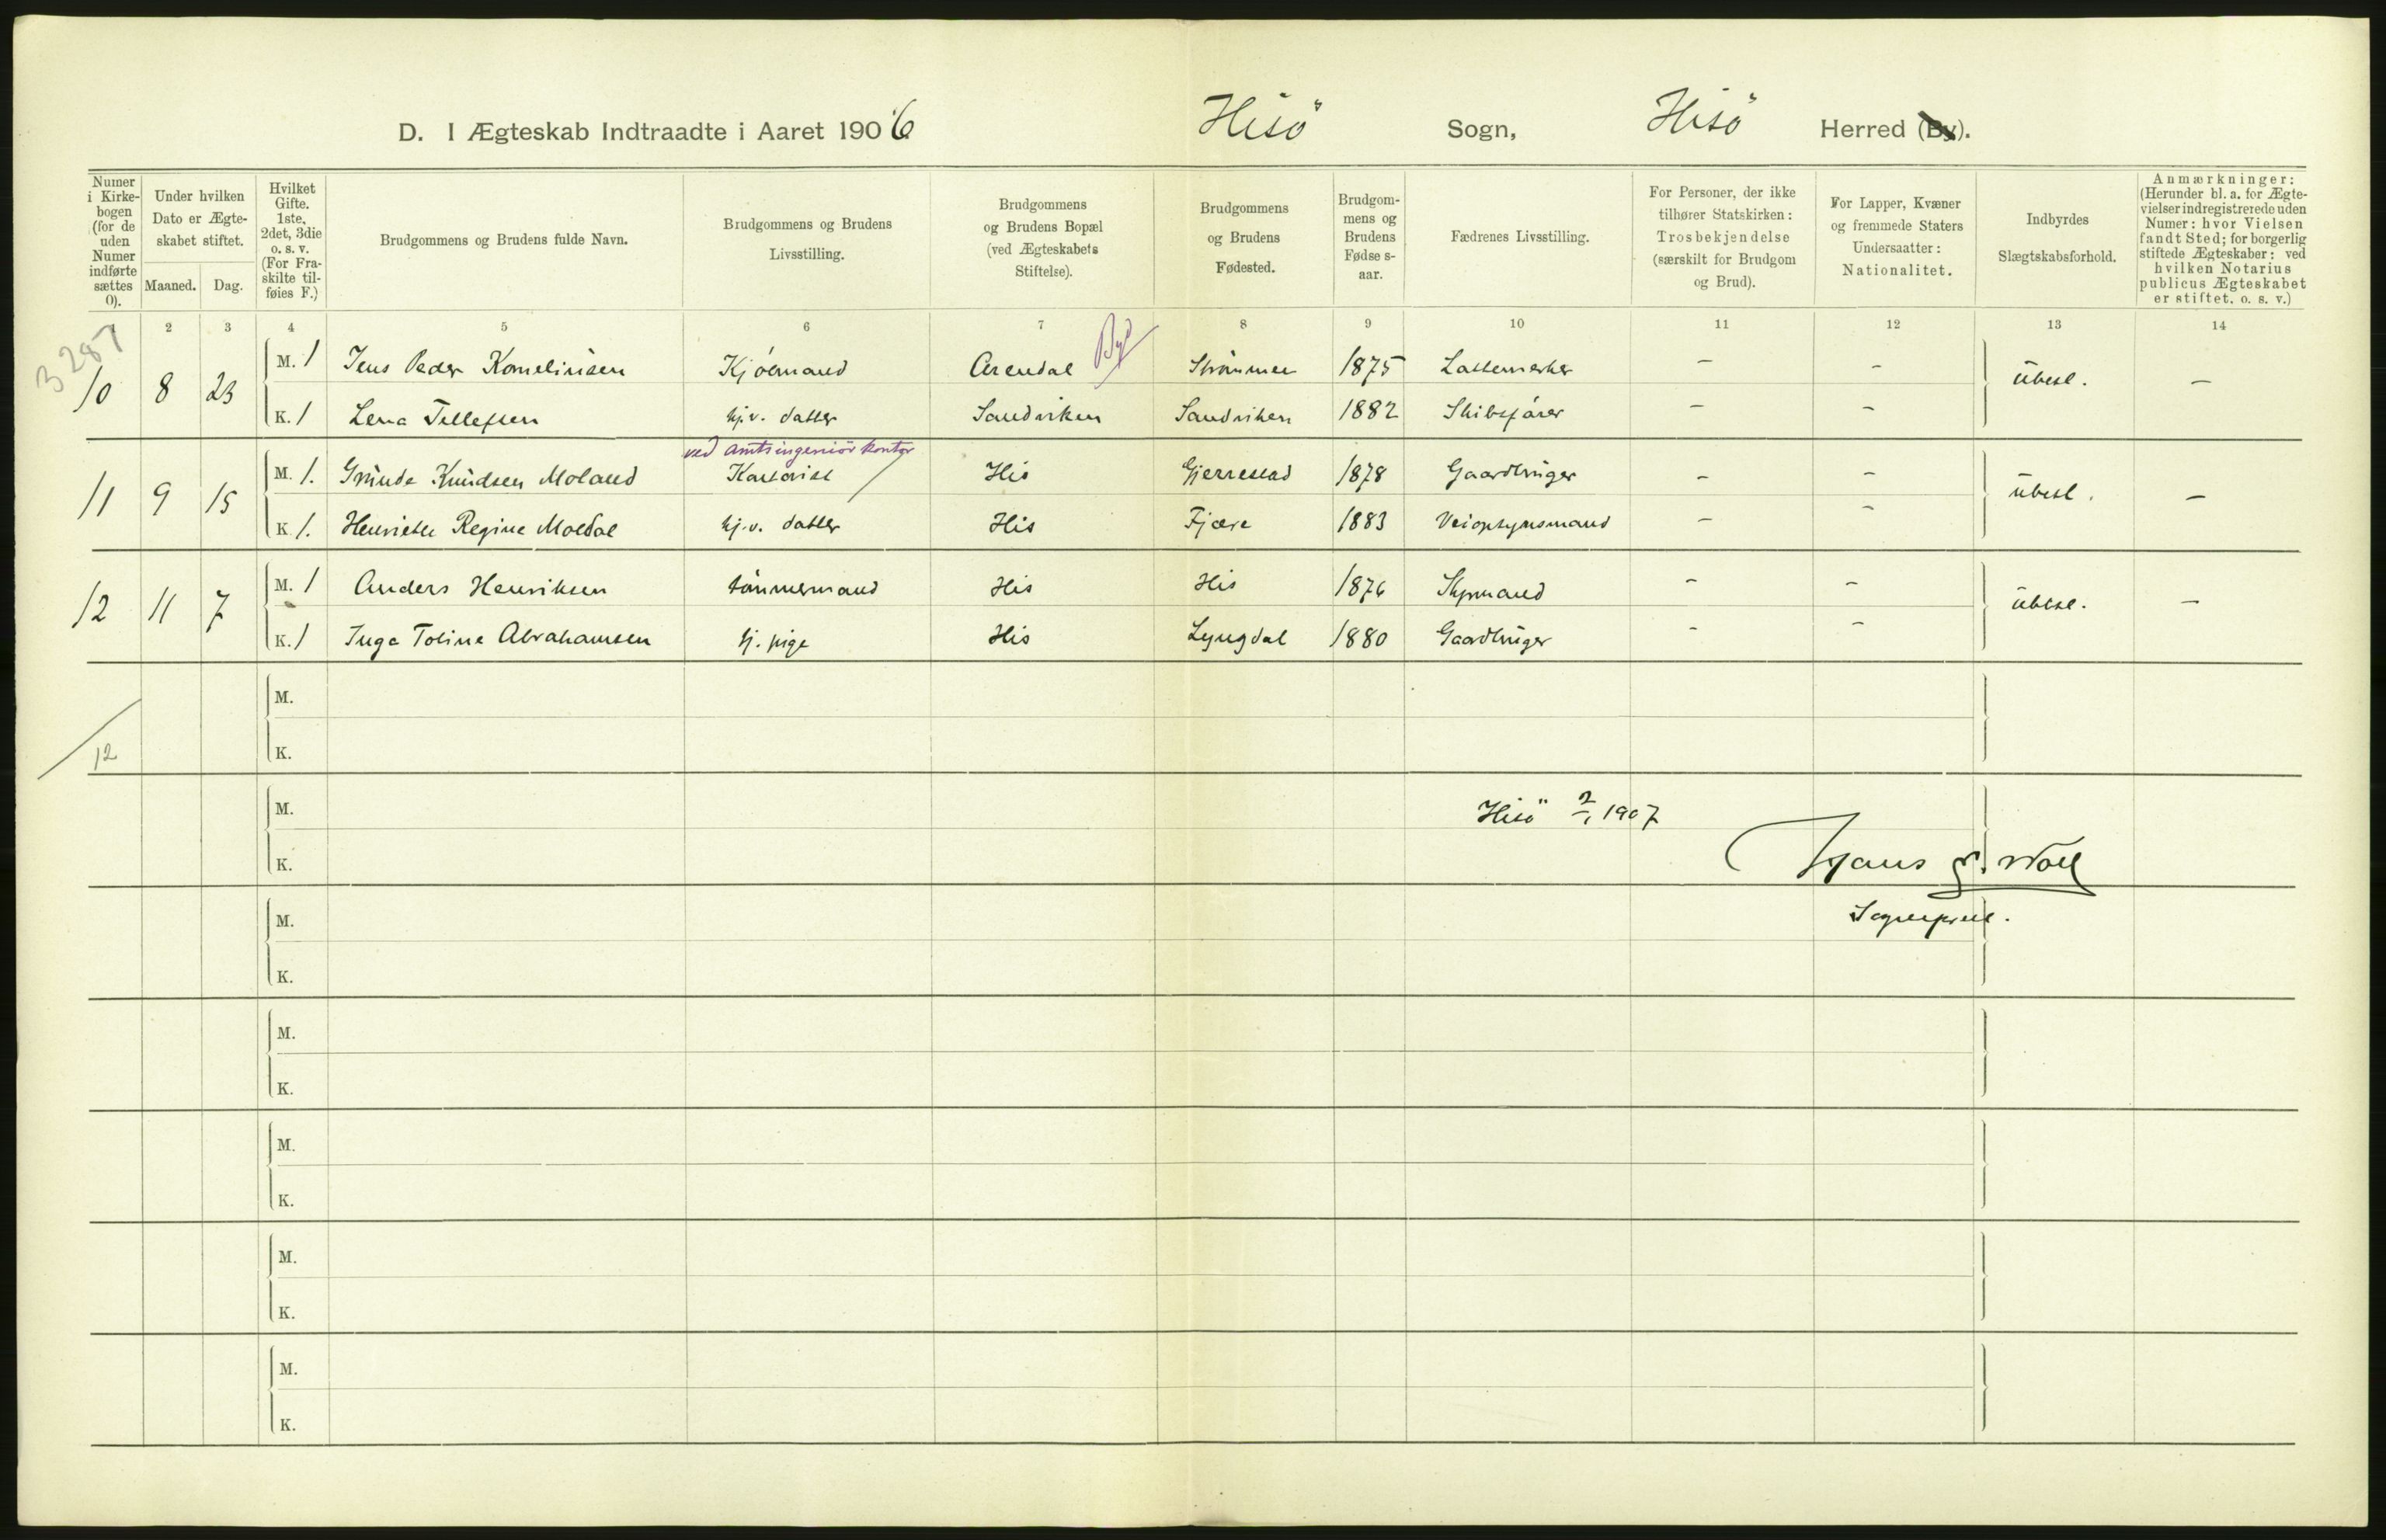 D. I Ægteskab Indtraadte i Aaret 1906 Hisö Sogn, Hisö Herred (By).
Numer i Kirkebogen (for de uden Numer indførte sættes 0).
Under hvilken Dato er Ægteskabet stiftet.
Maaned. Dag.
Hvilket Gifte. 1ste, 2det, 3die o. s. v. (For Fraskilte tilføies F.)
Brudgommens og Brudens fulde Navn.
Brudgommens og Brudens Livsstilling.
Brudgommens og Brudens Bopæl (ved Ægteskabets Stiftelse).
Brudgommens og Brudens Fødested.
Brudgommens og Brudens Fødselsaar.
Fædrenes Livsstilling.
For Personer, der ikke tilhører Statskirken: Trosbekjendelse (særskilt for Brudgom og Brud).
For Lapper, Kvæner og fremmede Staters Undersaatter: Nationalitet.
Indbyrdes Slægtskabsforhold.
Anmærkninger: (Herunder bl. a. for Ægtevielser indregistrerede uden Numer: hvor Vielsen fandt Sted; for borgerlig stiftede Ægteskaber: ved hvilken Notarius publicus Ægteskabet er stiftet. o. s. v.)
2 3 4 5 6 7 8 9 10 11 12 13 14
3287
By
10 8 23 M. 1 Jens Peder Kornelius̈en Kjöbmand Arendal Strömmen 1875 – – übesl. –
K. 1 Lena Tellefsen hj.v. datter Sandviken Sandviken 1882 Skibsfører – –
ved amtsingeniörkontor
11 9 15 M. 1. Knudsen Moland His Gjerrestad 1878 Gaardbrüger – – übesl. –
K. 1. Henriette Regine Moldal hj.v. datter His Fjære 1883 Veiopsynsmand – –
12 11 7 M. 1 Anders Henriksen tömmermand His His 1876 – – übesl. –
K. 1 Inga Toline Abrahamsen hj. pige His Lyngdal 1880 Gaardbrüger – –
M.
12 K.
M. Hisö 2/1 1907
K. Hans
M. Sogneprest.
K.
M.
K.
M.
K.
M.
K.
M.
K.